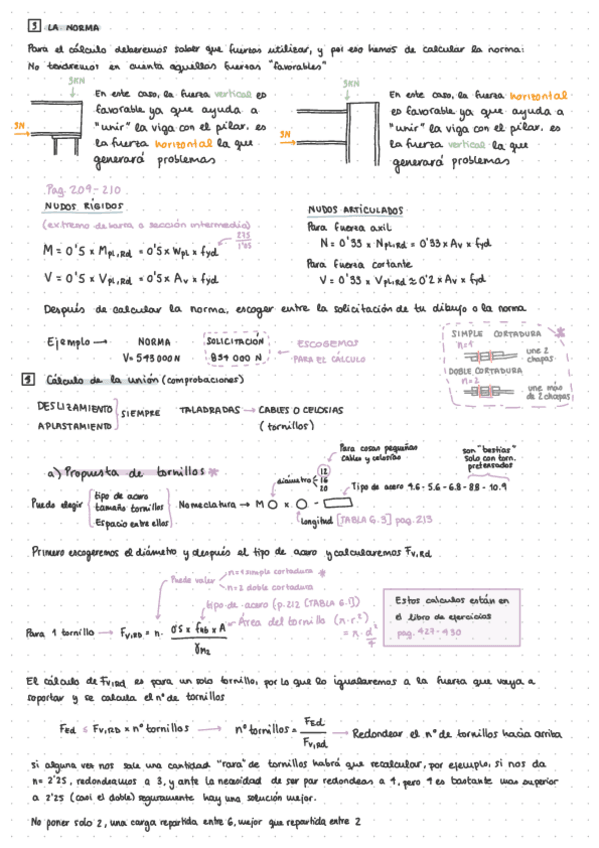 3 LA NORMA
Para el cálculo deberemos saber que fuerzas utilizar, y por eso hemos de calcular la norma:
No tendremos en cuenta aquellas fuerzas "favorables"
5KN
3N
En este caso, la fuerza vertical es
favorable ya que ayuda a
"unir" la viga con el pilar. es
la fuerza horizontal la que
generará problemas
5KN
3N
En este caso, la fuerza horizontal
es favorable ya que ayuda a
"unir" la viga con el pilar. es
la fuerza vertical la que
generará problemas
Pag. 209-210
NUDOS RÍGIDOS
(extremo de barra o sección intermedia)
M = 0'5 x Mpl,Rd = 0'5 x Wpl x fyd
275
1'05
V = 0'5 x Vpl,Rd = 0'5 x Av x fyd
NUDOS ARTICULADOS
Para fuerza axil
N = 0'33 x Npl,Rd = 0'33 x Av x fyd
Para fuerza cortante
V = 0'33 x Vpl,Rd ≈ 0'2 x Av x fyd
Después de calcular la norma, escoger entre la solicitación de tu dibujo o la norma
Ejemplo → NORMA
V= 543000N
SOLICITACIÓN
834 000 N
← ESCOGEMOS
PARA EL CÁLCULO
SIMPLE CORTADURA *
n=1
une 2
chapas
DOBLE CORTADURA
n=2
une más
de 2 chapas
Cálculo de la unión (comprobaciones)
DESLIZAMIENTO
APLASTAMIENTO
SIEMPRE
TALADRADAS → CABLES O CELOSIAS
(tornillos)
a) Propuesta de tornillos *
Para cosas pequeñas
cables y celosias
son "bestias"
Solo con torn.
pretensados
diámetro
12
16
20
Tipo de acero 4.6 - 5.6 - 6.8 - 8.8 - 10.9
Puedo elegir
tipo de acero
tamaño tornillos
Espacio entre ellos
Nomenclatura → M O x O -
Longitud [TABLA 6.3] pag. 213
Primero escogeremos el diámetro y después el tipo de acero y calcularemos Fv,Rd
Puede valer
n=1 simple cortadura *
n=2 doble cortadura
tipo de acero (p.212 [TABLA 6.1])
Área del tornillo (π·r²)
= π· d²/4
Para 1 tornillo → Fv,RD = n· 0'5 x fub x A / γM2
Estos calculos están en
el libro de ejercicios
pag. 427-430
El cálculo de Fv,Rd es para un solo tornillo, por lo que lo igualaremos a la fuerza que vaya a
soportar y se calcula el nº de tornillos
FEd ≤ Fv,RD x nº tornillos → nº tornillos = FEd / Fv,Rd → Redondear el nº de tornillos hacia arriba
si alguna vez nos sale una cantidad "rara" de tornillos habrá que recalcular, por ejemplo, si nos da
n= 2'25, redondeamos a 3, y ante la necesidad de ser par redondeas a 4, pero 4 es bastante mas superior
a 2'25 (casi el doble) seguramente hay una solución mejor.
No poner solo 2, una carga repartida entre 6, mejor que repartida entre 2